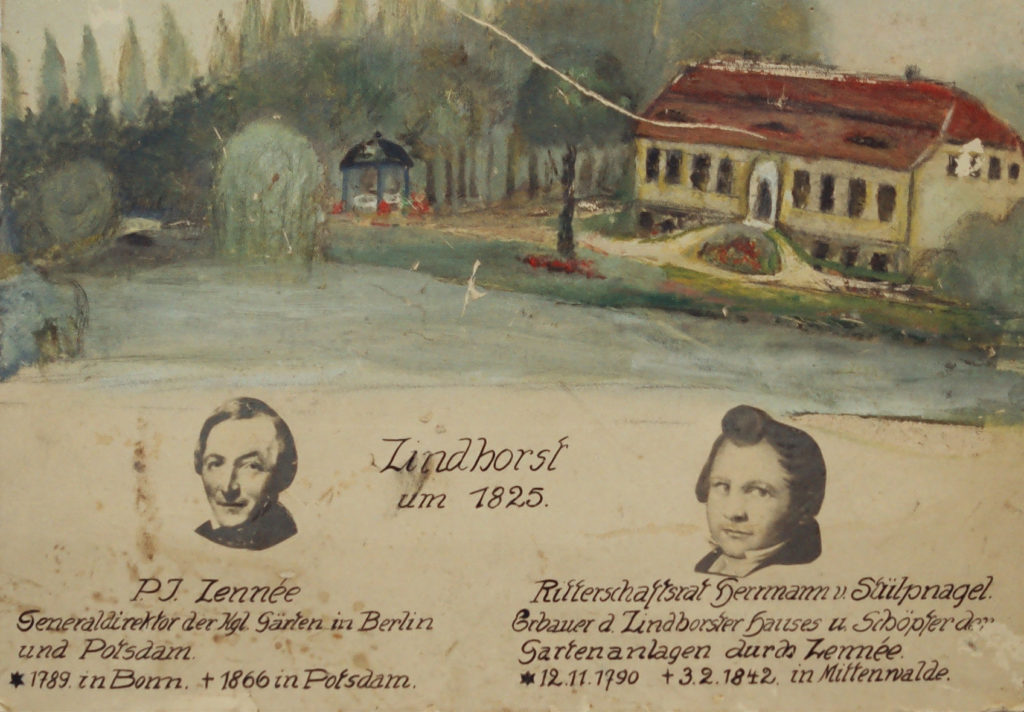 Lindhorst
um 1825.
P.J. Lennée
Generaldirektor der Kgl. Gärten in Berlin
und Potsdam.
* 1789. in Bonn. † 1866 in Potsdam.
Ritterschaftsrat Herrmann v. Stülpnagel.
Erbauer d. Lindhorster Hauses u. Schöpfer der
Gartenanlagen durch Lennée.
* 12.11.1790 † 3.2.1842. in Mittenwalde.